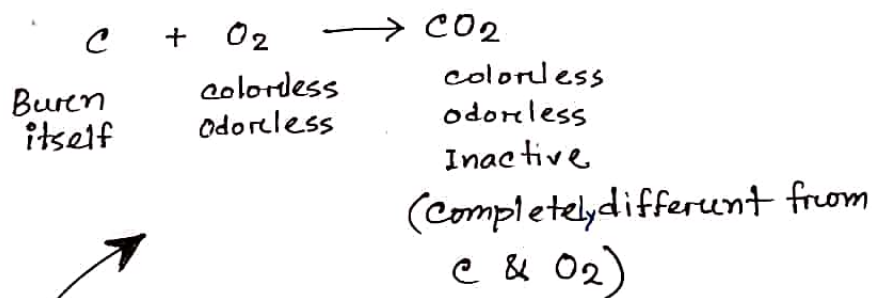 C + O2 → CO2
Burn itself
colorless
odorless
colorless
odorless
Inactive
(completely different from
C & O2)